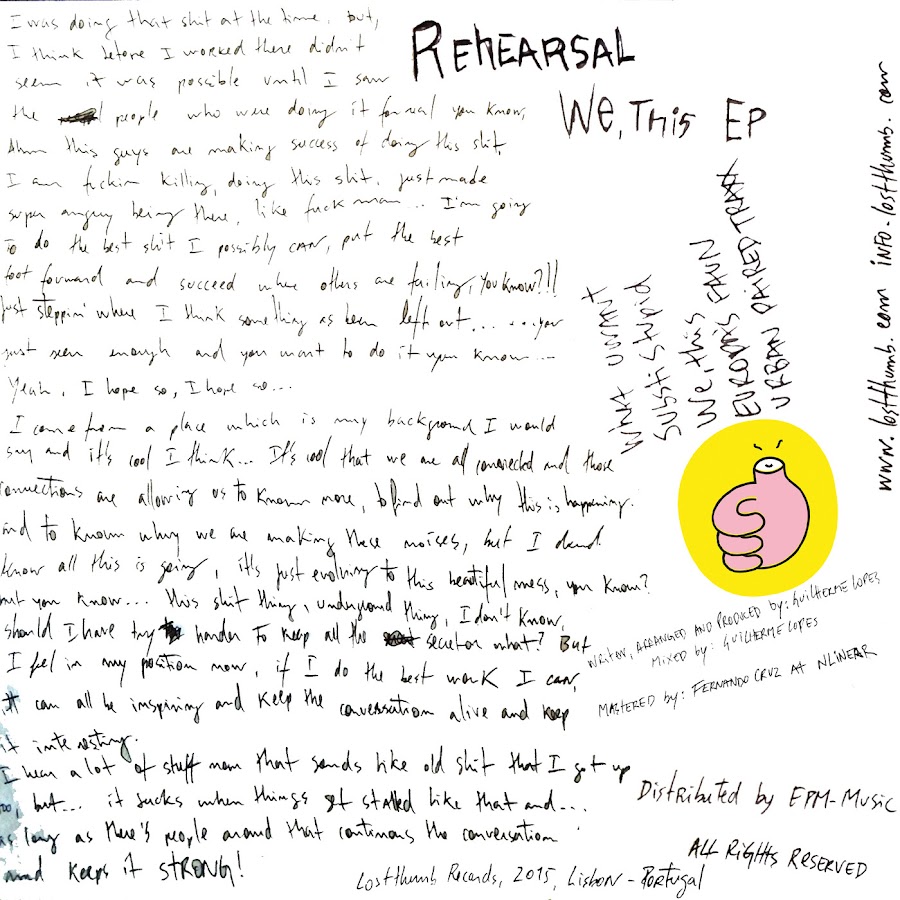 I was doing that shit at the time, but,
I think before I worked there didn't
seem it was possible until I saw
the people who were doing it for real you know,
this guys are making success of doing this shit,
I am fuckin killing, doing this shit, just made
super angry being there, like fuck man... I'm going
To do the best shit I possibly can, put the best
foot forward and succeed where others are failing, you know?!!
just steppin' where I think something as been left out... ...you
just seen enough and you want to do it you know...
Yeah, I hope so, I hope so...
I come from a place which is my background I would
say and it's cool I think... It's cool that we are all connected and those
connections are allowing us to known more, to find out why this is happening.
and to known why we are making these noises, but I dond
know all this is going, it's just evolving to this beautiful mess, you know?
but you know... this shit thing, underground thing, I don't know,
should I have try harder to keep all the secret or what? But
I feel in my position now, if I do the best work I can,
it can all be inspiring and keep the conversation alive and keep
it interesting.
I hear a lot of stuff man that sands like old shit that I got up
too, but... it sucks when things get stalled like that and...
as long as there's people around that continous the conversation
and keeps it STRONG!
REHEARSAL
We, This EP
WHAT U WANT
SUBSTI STUPID
We, this FAWN
URBAN PAIRED TRAXX
www.lostthumb.com INFO.lostthumb.com
Writen, ARRANGED AND PRODUCED by: GUILHERME LOPES
MIXED by: GUILHERME LOPES
MASTERED by: FERNANDO CRUZ AT NLINEAR
Distributed by EPM-MUSIC
ALL RIGHTS RESERVED
Lostthumb Records, 2015, LISBON - PORTUGAL